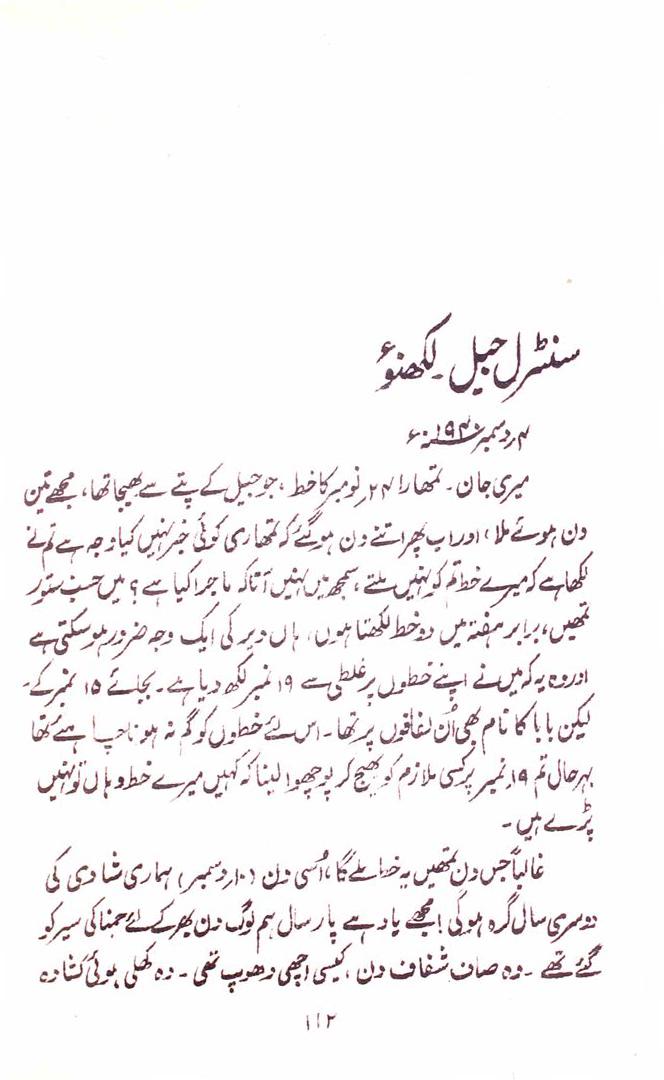 سنٹرل جیل۔ لکھنؤ
۴ر دسمبر ۱۹۴۰ء
میری جان۔ تمھارا ۲۴ر نومبر کا خط، جو جیل کے پتے سے بھیجا تھا، مجھے تین
دن ہوئے ملا، اور اب پھر اتنے دن ہو گئے کہ تمھاری کوئی خبر نہیں کیا وجہ ہے تم نے
لکھا ہے کہ میرے خط تم کو نہیں ملتے، سمجھ میں نہیں آتا کہ ماجرا کیا ہے؟ میں حسب دستور
تمھیں، برابر ہفتہ میں دو خط لکھتا ہوں، ہاں دیر کی ایک وجہ ضرور ہو سکتی ہے
اور وہ یہ کہ میں نے اپنے خطوں پر غلطی سے ۱۹ نمبر لکھ دیا ہے۔ بجائے ۱۵ نمبر کے۔
لیکن بابا کا نام بھی اُن لفافوں پر تھا۔ اس لئے خطوں کو گم نہ ہونا چاہئے تھا
بہرحال تم ۱۹ر نمبر پر کسی ملازم کو بھیج کر پوچھوا لینا کہ کہیں میرے خط وہاں تو نہیں
پڑے ہیں۔
غالباً جس دن تمھیں یہ خط ملے گا، اُسی دن (۱۰ر دسمبر) ہماری شادی کی
دوسری سال گرہ ہوگی! مجھے یاد ہے پار سال ہم لوگ دن بھر کے لئے جمنا کی سیر کو
گئے تھے۔ وہ صاف شفاف دن، کیسی اچھی دھوپ تھی۔ وہ کھلی ہوئی کشادہ
۱۱۲